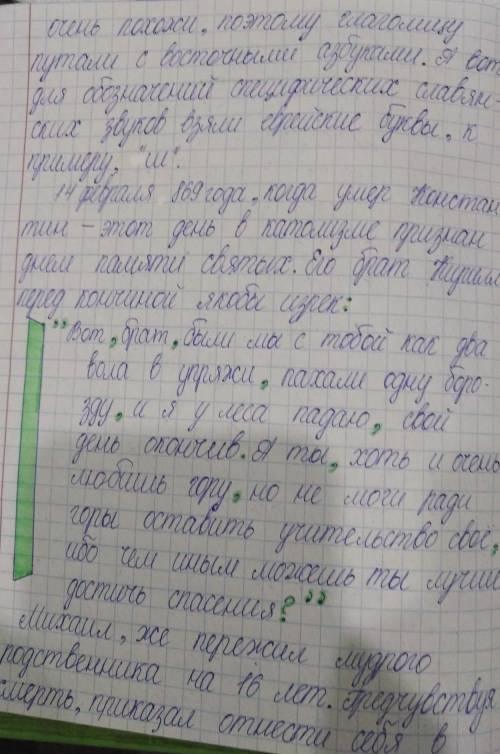 очень похожи, поэтому глаголицу
путали с восточными азбуками. А вот
для обозначений специфических славян-
ских звуков взяли еврейские буквы, к
примеру, "ш".
14 февраля 869 года, когда умер Констан
тин - этот день в католизме признан
днём памяти святых. Его брат Кирилл
перед кончиной якобы изрек:
"Вот, брат, были мы с тобой как два
вола в упряжи, пахали одну боро-
зду, и я у леса падаю, свой
день окончив. А ты, хоть и очень
любишь гору, но не моги ради
горы оставить учительство своё,
ибо чем иным можешь ты лучше
достичь спасения?"
Михаил, же пережил мудрого
родственника на 16 лет. Предчувствуя
смерть, приказал отнести себя в